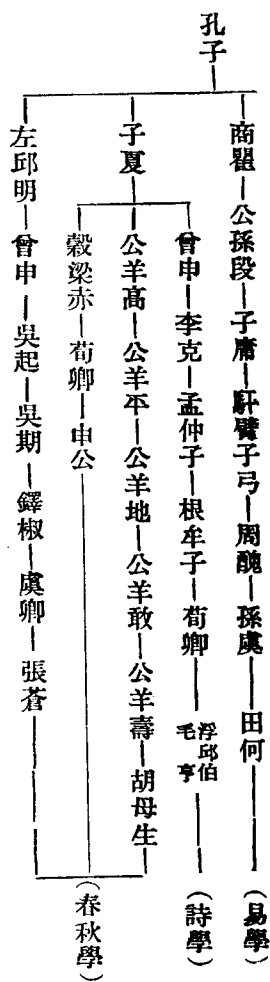 孔子
商瞿—公孫段—子庸—馯臂子弓—周醜—孫虞—田何 (易學)
子夏
曾申—李克—孟仲子—根牟子—荀卿—浮邱伯 毛亨 (詩學)
公羊高—公羊平—公羊地—公羊敢—公羊壽—胡母生
穀梁赤—荀卿—申公
左邱明—曾申—吳起—吳期—鐸椒—虞卿—張蒼
(春秋學)